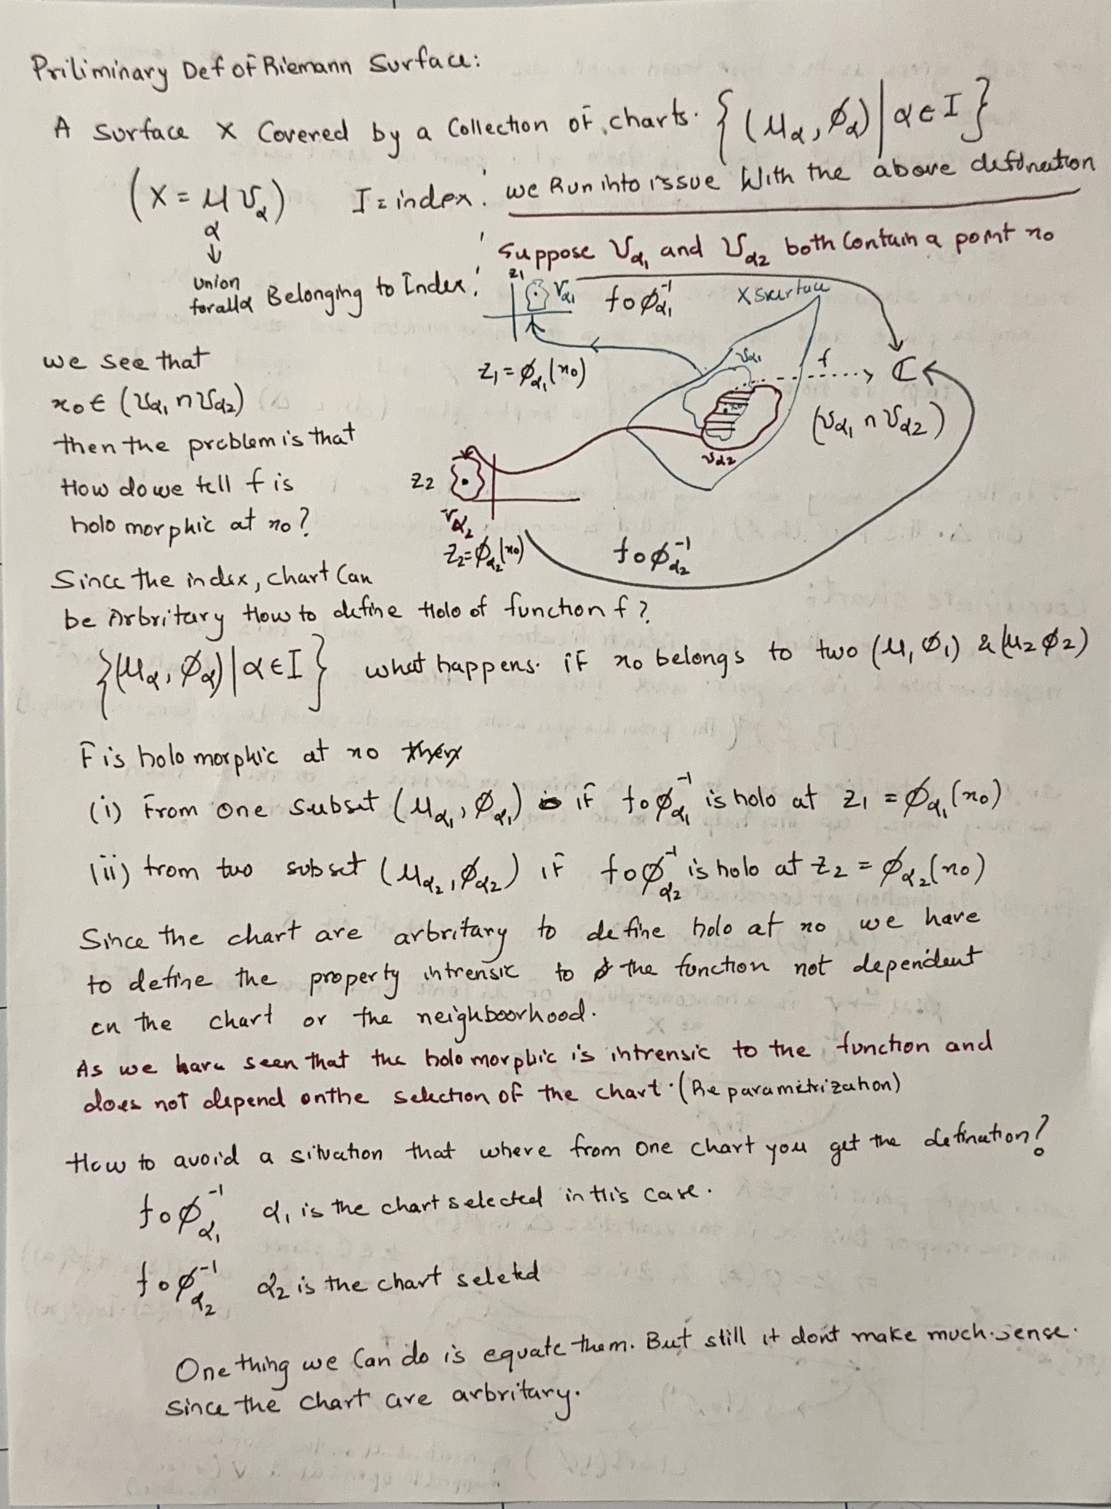 Priliminary Def of Riemann Surface:
A Surface X Covered by a Collection of charts. {(Uα, ϕα) | α ∈ I}
(X = U Uα) I = index. we Run into issue With the above defination
α
↓
Union
for all α Belonging to Index.
Suppose Uα1 and Uα2 both Contain a point x0
z1 Vα1 f∘ϕα1⁻¹ X Surface
z1 = ϕα1(x0) Uα1 f ℂ
(Uα1 ∩ Uα2)
Uα2
z2
Vα2
z2 = ϕα2(x0) f∘ϕα2⁻¹
we see that
x0 ∈ (Uα1 ∩ Uα2)
then the problem is that
How do we tell f is
holo morphic at x0?
Since the index, chart Can
be Arbritary How to define Holo of function f?
{(Uα, ϕα) | α ∈ I} what happens. if x0 belongs to two (U1 ϕ1) & (U2 ϕ2)
F is holo morphic at x0 then
(i) From one subset (Uα1, ϕα1) if f∘ϕα1⁻¹ is holo at z1 = ϕα1(x0)
(ii) from two subset (Uα2, ϕα2) if f∘ϕα2⁻¹ is holo at z2 = ϕα2(x0)
Since the chart are arbritary to define holo at x0 we have
to define the property intrensic to the function not dependent
on the chart or the neighboorhood.
As we have seen that the holo morphic is intrensic to the function and
does not depend on the selection of the chart. (Re parametrization)
How to avoid a situation that where from one chart you get the defination?
f∘ϕα1⁻¹ α1 is the chart selected in this case.
f∘ϕα2⁻¹ α2 is the chart seletd
One thing we Can do is equate them. But still it dont make much sense.
Since the chart are arbritary.